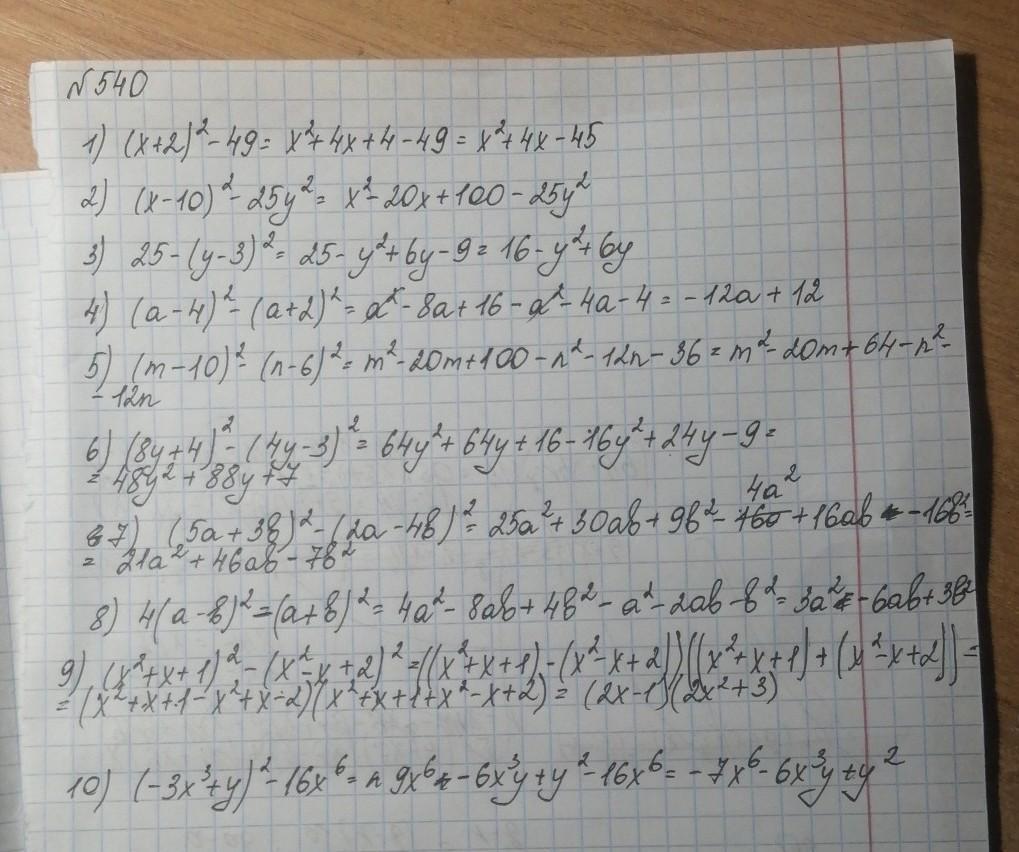 №540
1) (x+2)²-49= x²+4x+4-49=x²+4x-45
2) (x-10)²-25y²= x²-20x+100-25y²
3) 25-(y-3)²= 25-y²+6y-9=16-y²+6y
4) (a-4)²-(a+2)²= a²-8a+16-a²-4a-4=-12a+12
5) (m-10)²-(n-6)²=m²-20m+100-n²-12n-36=m²-20m+64-n²-
-12n
6) (8y+4)²-(4y-3)²=64y²+64y+16-16y²+24y-9=
= 48y²+88y+7
4a²
7) (5a+3b)²-(2a-4b)²=25a²+30ab+9b²- +16ab -16b²=
= 21a²+46ab-7b²
8) 4(a-b)²=(a+b)²= 4a²-8ab+4b²-a²-2ab-b²=3a²-6ab+3b²
9) (x²+x+1)²-(x²-x+2)²=((x²+x+1)-(x²-x+2))((x²+x+1)+(x²-x+2))=
=(x²+x+1-x²+x-2)(x²+x+1+x²-x+2)= (2x-1)(2x²+3)
10) (-3x³+y)²-16x⁶= 9x⁶-6x³y+y²-16x⁶=-7x⁶-6x³y+y²